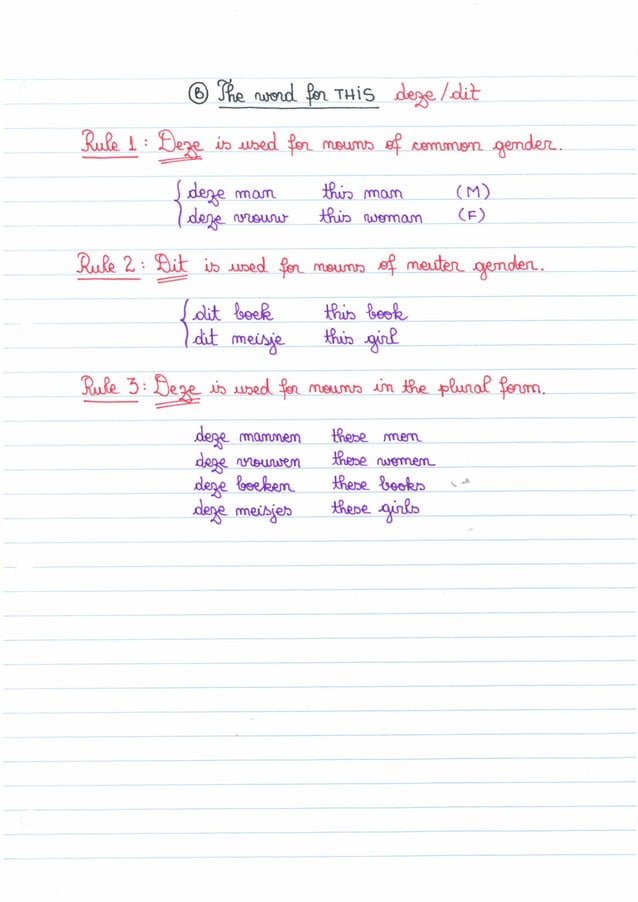 Ⓑ The word for THIS deze/dit
Rule 1: Deze is used for nouns of common gender.
deze man this man (M)
deze vrouw this woman (F)
Rule 2: Dit is used for nouns of neuter gender.
dit boek this book
dit meisje this girl
Rule 3: Deze is used for nouns in the plural form.
deze mannen these men
deze vrouwen these women
deze boeken these books
deze meisjes these girls